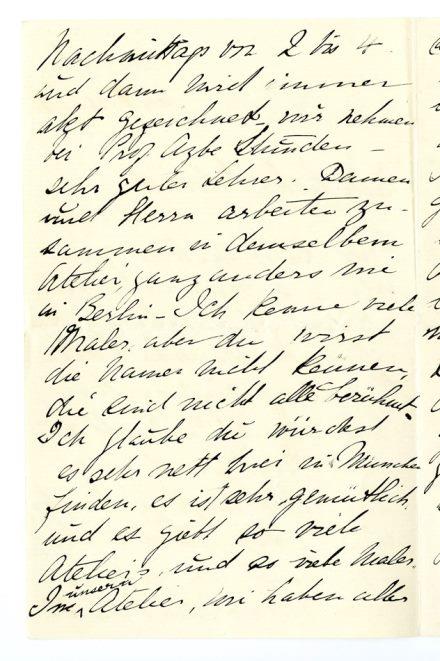 Nachmittags von 2 bis 4.
und dann wird immer
akt gezeichnet, wir nehmen
bei Prof. Azbe Stunden –
sehr guter Lehrer. Damen
und Herrn arbeiten zu-
sammen in demselben
Atelier, ganz anders wie
in Berlin – Ich kenne viele
Maler aber du wirst
die Namen nicht kennen,
die sind nicht alle berühmt.
Ich glaube du würdest
es sehr nett hier in München
finden, es ist sehr gemütlich
und es giebt so viele
Ateliers, und so viele Maler.
unserm
Im Atelier, wir haben alles